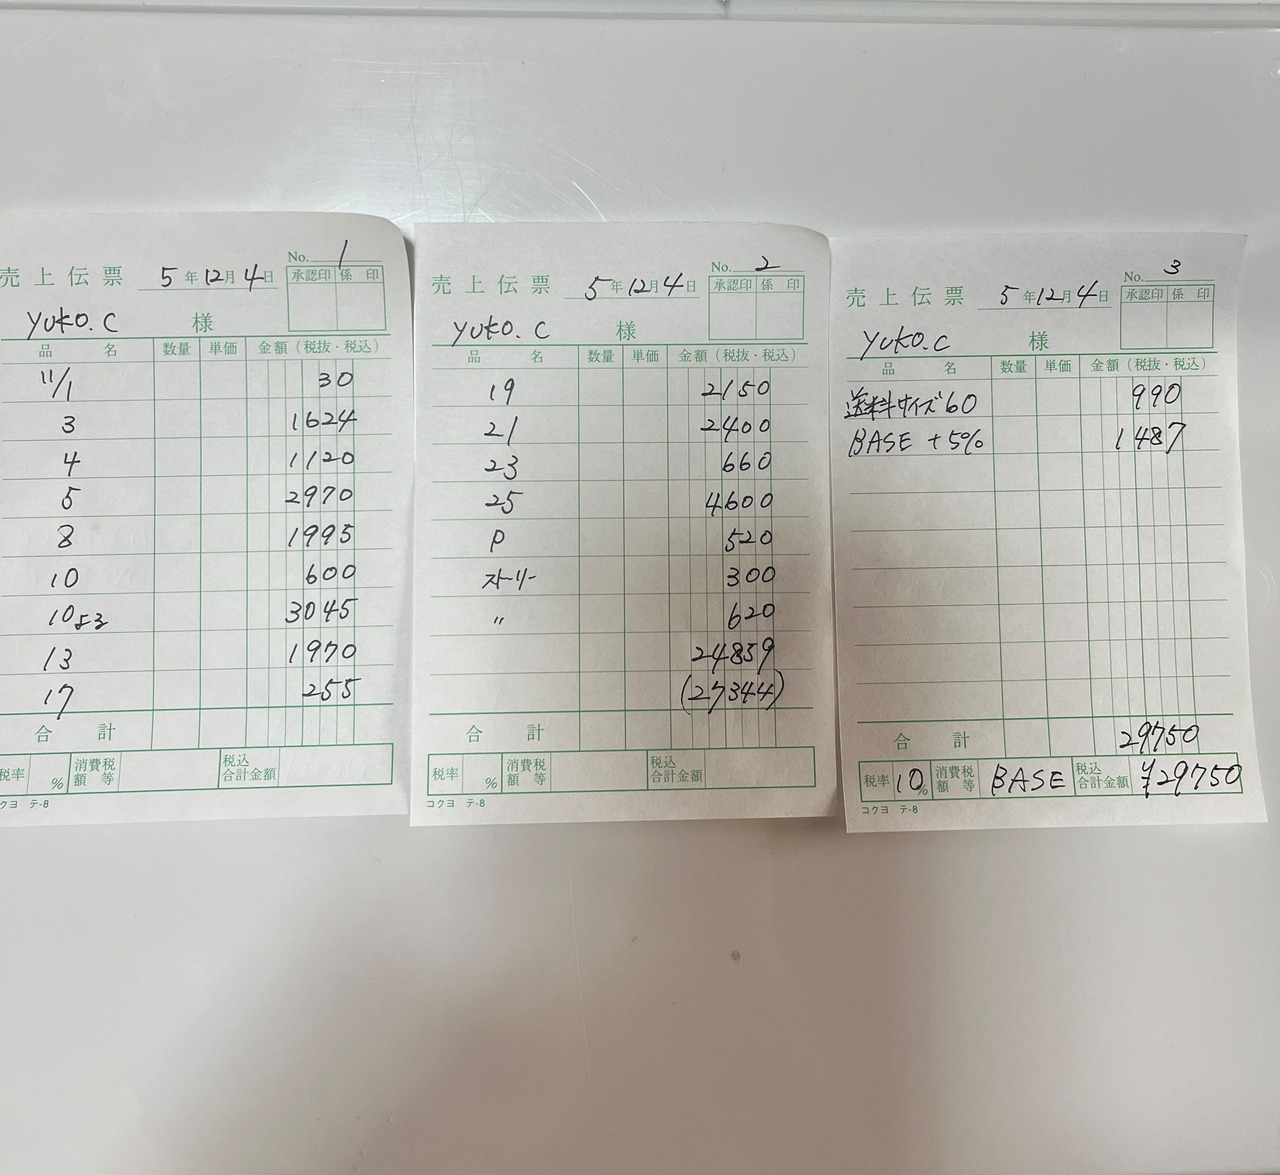 No. 1
売上伝票 5年12月4日
承認印 係印
YUKO.C 様
品名 数量 単価 金額(税抜・税込)
11/1 30
3 1624
4 1120
5 2970
8 1995
10 600
10よる 3045
13 1970
17 255
合計
税率 % 消費税額等 税込合計金額
クヨ テ-8
No. 2
売上伝票 5年12月4日
承認印 係印
YUKO.C 様
品名 数量 単価 金額(税抜・税込)
19 2150
21 2400
23 660
25 4600
P 520
ストーリー 300
〃 620
24859
(27344)
合計
税率 % 消費税額等 税込合計金額
コクヨ テ-8
No. 3
売上伝票 5年12月4日
承認印 係印
YUKO.C 様
品名 数量 単価 金額(税抜・税込)
送料サイズ60 990
BASE +5% 1487
合計 29750
税率 10% 消費税額等 BASE 税込合計金額 ¥29750
コクヨ テ-8